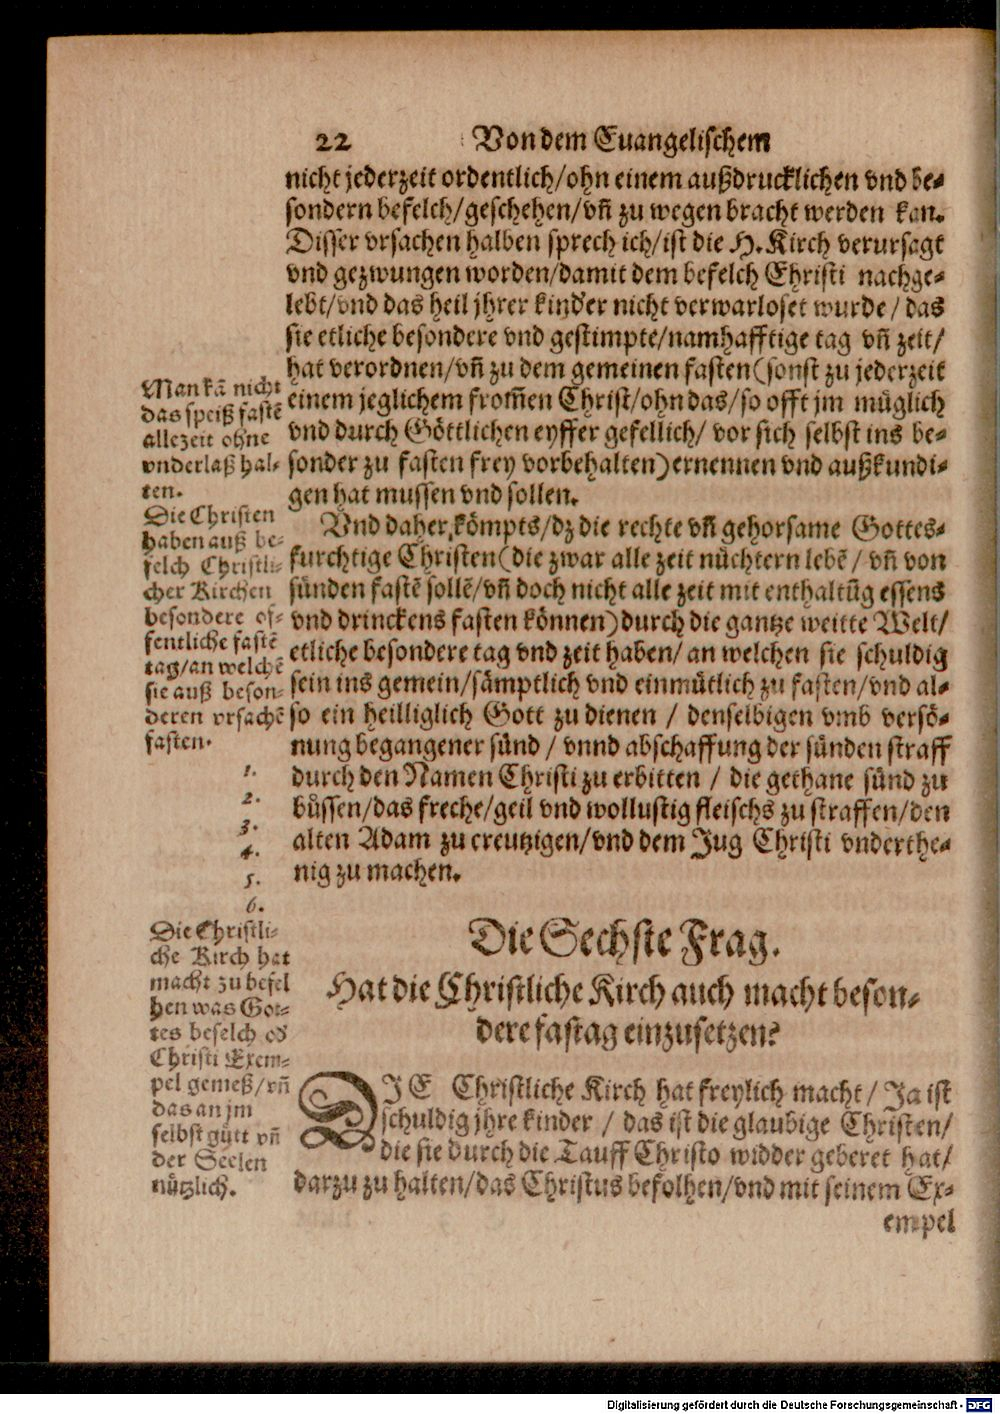 22 Von dem Euangelischem
nicht jederzeit ordentlich/ohn einem außdrucklichen vnd be-
sondern befelch/geschehen/vñ zu wegen bracht werden kan.
Disser vrsachen halben sprech ich/ist die H. Kirch verursagt
vnd gezwungen worden/damit dem befelch Christi nachge-
lebt/vnd das heil jhrer kinder nicht verwarloset wurde/das
sie etliche besondere vnd gestimpte/namhafftige tag vñ zeit/
hat verordnen/vñ zu dem gemeinen fasten(sonst zu jederzeit
einem jeglichem from̃en Christ/ohn das/so offt jm müglich
vnd durch Göttlichen eyffer gefellich/vor sich selbst ins be-
sonder zu fasten frey vorbehalten)ernennen vnd außkundi-
gen hat mussen vnd sollen.
Man kã nicht
das speiß fastẽ
allezeit ohne
vnderlaß hal-
ten.
Vnd daher kömpts/dz die rechte vñ gehorsame Gottes-
furchtige Christen(die zwar alle zeit nüchtern lebẽ/vñ von
sünden fastẽ sollẽ/vñ doch nicht alle zeit mit enthaltũg essens
vnd drinckens fasten können)durch die gantze weitte Welt/
etliche besondere tag vnd zeit haben/an welchen sie schuldig
sein ins gemein/sämptlich vnd einmütlich zu fasten/vnd al-
so ein heilliglich Gott zu dienen/denselbigen vmb versö-
nung begangener sünd/vnnd abschaffung der sünden straff
durch den Namen Christi zu erbitten/die gethane sünd zu
büssen/das freche/geil vnd wollustig fleischs zu straffen/den
alten Adam zu creutzigen/vnd dem Jug Christi vnderthe-
nig zu machen.
Die Christen
haben auß be-
felch Christli-
cher Kirchen
besondere of-
fentliche fastẽ
tag/an welchẽ
sie auß beson-
deren vrsachẽ
fasten.
1.
2.
3.
4.
5.
6.
Die Sechste Frag.
Hat die Christliche Kirch auch macht beson-
dere fastag einzusetzen?
DIE Christliche Kirch hat freylich macht/Ja ist
schuldig jhre kinder/das ist die glaubige Christen/
die sie durch die Tauff Christo widder geberet hat/
darzu zu halten/das Christus befolhen/vnd mit seinem Ex-
empel
Die Christli-
che Kirch hat
macht zu befel
hen was Got-
tes befelch od
Christi Exem-
pel gemeß/vñ
das an jm
selbst gütt vñ
der Seelen
nützlich.
Digitalisierung gefördert durch die Deutsche Forschungsgemeinschaft - DFG